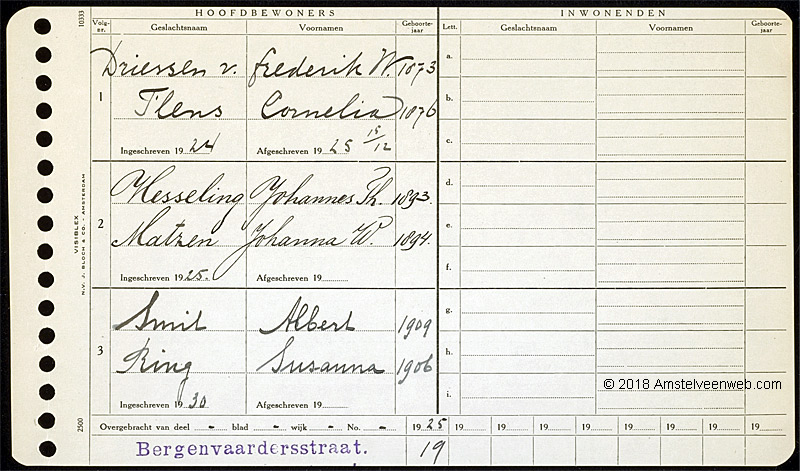 HOOFDBEWONERS INWONENDEN
Volg-nr. Geslachtsnaam Voornamen Geboorte-jaar Lett. Geslachtsnaam Voornamen Geboorte-jaar
10333
Driessen v. Frederik W. 1873
1
Flens Cornelia 1876
Ingeschreven 19 24 Afgeschreven 19 25 15/12
a.
b.
c.
Hesseling Johannes Th. 1893.
2
Matzen Johanna W. 1894.
Ingeschreven 19 25. Afgeschreven 19
d.
e.
f.
VISIBLEX
N.V. J. BLOCH & CO. - AMSTERDAM
Smit Albert 1909
3
Ring Susanna 1906
Ingeschreven 19 30 Afgeschreven 19
g.
h.
i.
© 2018 Amstelveenweb.com
2500
Overgebracht van deel - blad - wijk - No. - 19 25 19 19 19 19 19 19 19 19
Bergenvaardersstraat. 19